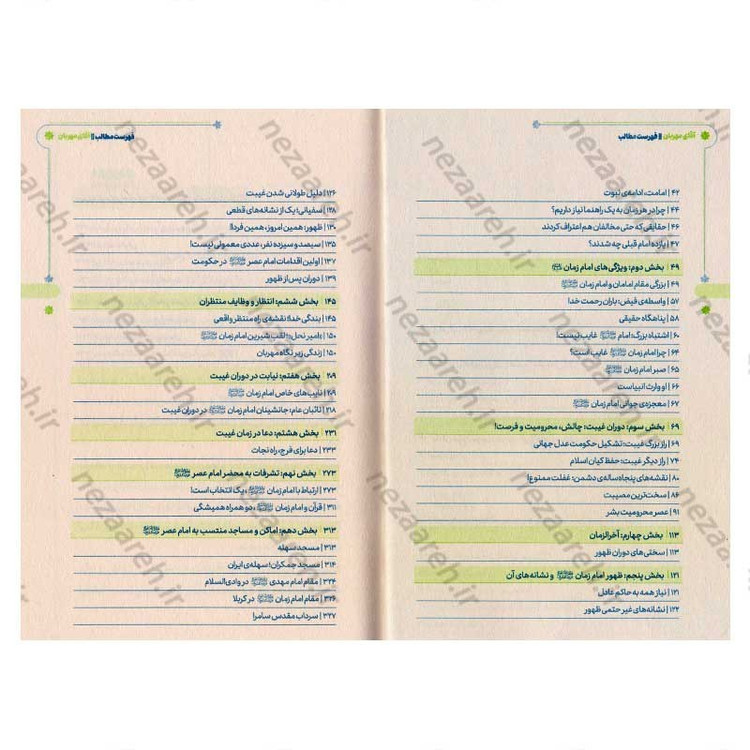 آقای مهربان || فهرست مطالب
۴۲ | امامت؛ ادامه‌ی نبوت
۴۴ | چرا در هر زمان به یک راهنما نیاز داریم؟
۴۶ | حقایقی که حتی مخالفان هم اعتراف کردند
۴۷ | یازده امام قبلی چه شدند؟
۴۹ بخش دوم: ویژگی‌های امام زمان
۴۹ | بزرگی مقام امامان و امام زمان
۵۷ | واسطه‌ی فیض؛ باران رحمت خدا
۵۸ | پناهگاه حقیقی
۶۰ | اشتباه بزرگ؛ امام غایب نیست!
۶۴ | چرا امام زمان غایب است؟
۶۵ | صبر امام زمان
۶۶ | او وارث انبیاست
۶۷ | معجزه‌ی جوانی امام زمان
۶۹ بخش سوم: دوران غیبت: چالش، محرومیت و فرصت!
۶۹ | راز بزرگ غیبت: تشکیل حکومت عدل جهانی
۷۴ | راز دیگر غیبت: حفظ کیان اسلام
۸۰ | نقشه‌های پنجاه‌ساله‌ی دشمن: غفلت ممنوع!
۸۶ | سخت‌ترین مصیبت
۹۱ | عصر محرومیت بشر
۱۱۳ بخش چهارم: آخرالزمان
۱۱۳ | سختی‌های دوران ظهور
۱۲۱ بخش پنجم: ظهور امام زمان و نشانه‌های آن
۱۲۱ | نیاز همه به حاکم عادل
۱۲۲ | نشانه‌های غیر حتمی ظهور
فهرست مطالب || آقای مهربان
۱۲۶ | دلیل طولانی شدن غیبت
۱۲۸ | سفیانی؛ یک از نشانه‌های قطعی
۱۳۰ | ظهور: همین امروز، همین فردا!
۱۳۵ | سیصد و سیزده نفر، عددی معمولی نیست!
۱۳۷ | اولین اقدامات امام عصر در حکومت
۱۳۹ | دوران پس از ظهور
۱۴۵ بخش ششم: انتظار و وظایف منتظران
۱۴۵ | بندگی خدا؛ نقشه‌ی راه منتظر واقعی
۱۵۰ | «امیر نحل»؛ لقب شیرین امام زمان
۱۵۰ | زندگی زیر نگاه مهربان
۲۰۹ بخش هفتم: نیابت در دوران غیبت
۲۰۹ | نایب‌های خاص امام زمان
۲۱۸ | نائبان عام: جانشینان امام زمان در دوران غیبت
۲۳۱ بخش هشتم: دعا در زمان غیبت
۲۳۳ | دعا برای فرج، راه نجات
۲۷۳ بخش نهم: تشرفات به محضر امام عصر
۲۷۳ | ارتباط با امام زمان، یک انتخاب است!
۳۰۷ | قرآن و امام زمان، دو همراه همیشگی
۳۱۳ بخش دهم: اماکن و مساجد منتسب به امام عصر
۳۱۳ | مسجد سهله
۳۱۴ | مسجد جمکران؛ سهله‌ی ایران
۳۲۴ | مقام امام مهدی در وادی‌السلام
۳۲۶ | مقام امام زمان در کربلا
۳۲۷ | سرداب مقدس سامرا
nezaareh.ir